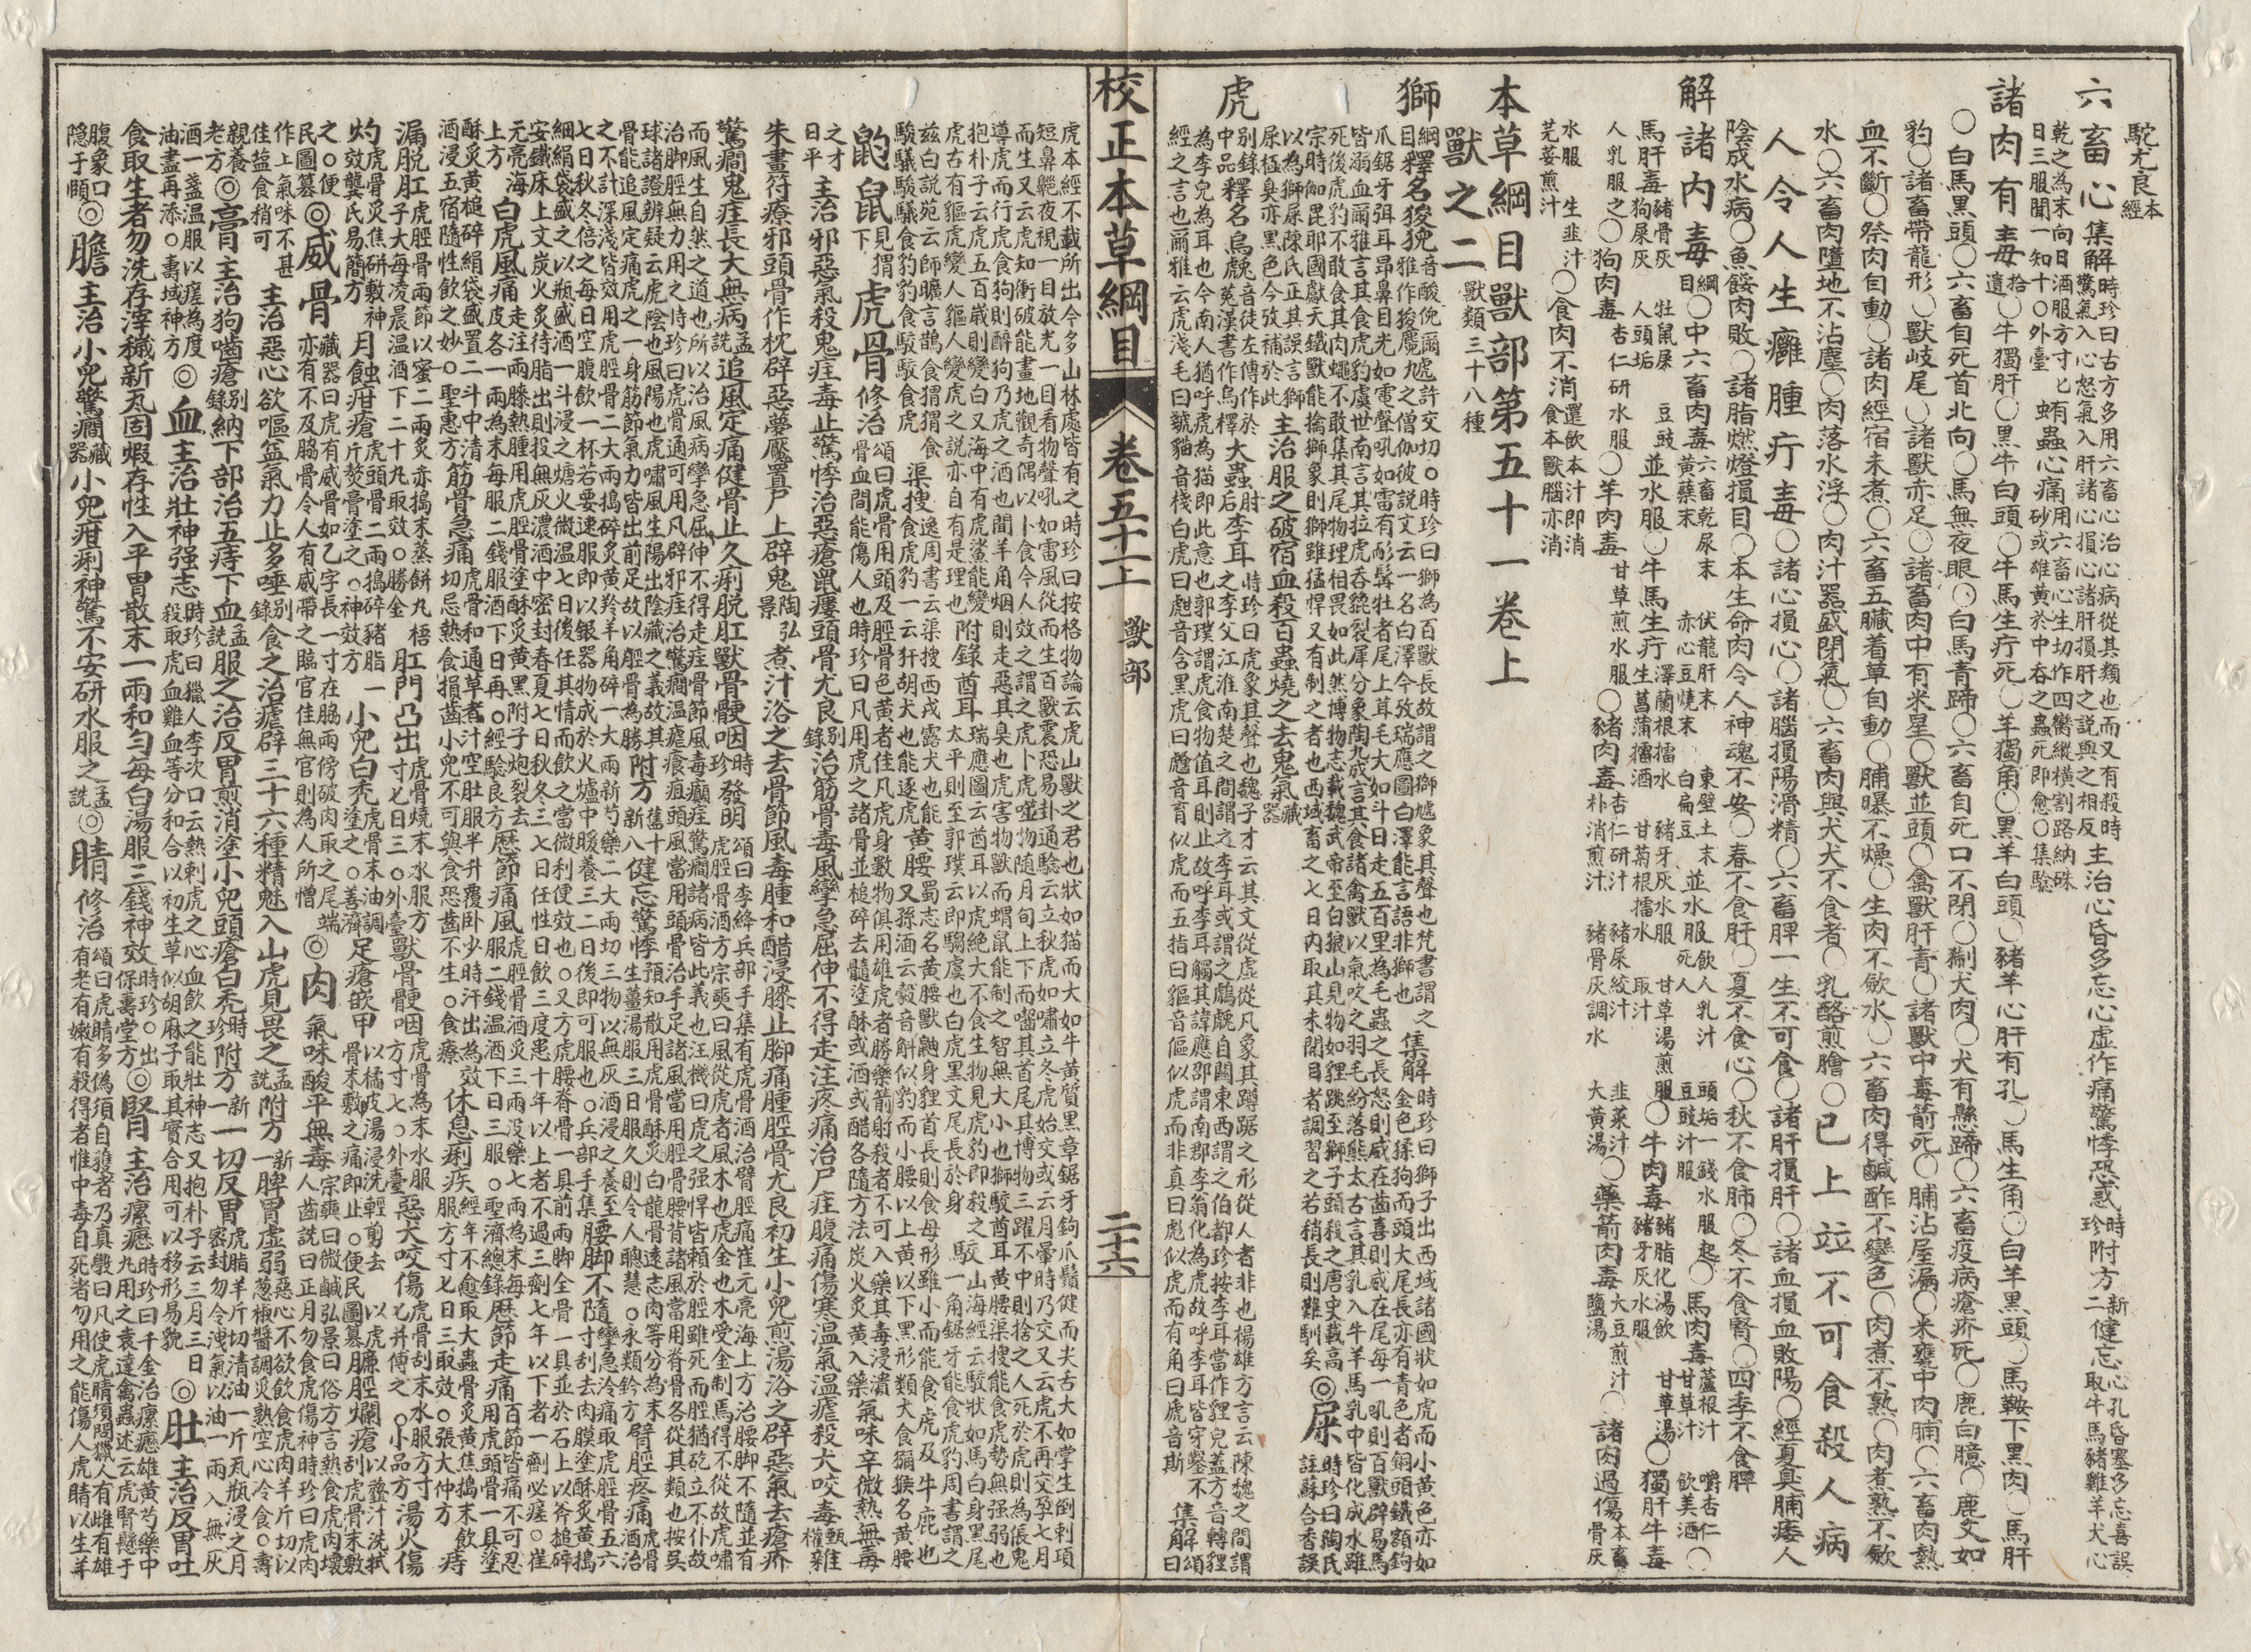 駝尤良本經
六畜心集解時珍曰古方多用六畜心治心病從其類也而又有殺時驚氣入心怒氣入肝諸心損心諸肝損肝之説與之相反主治心昏多忘心虛作痛驚悸恐惑時珍附方新二健忘心孔昏塞多忘喜誤取牛馬豬雞羊犬心
乾之為末向日酒服方寸匕日三服聞一知十〇外臺蛕蟲心痛用六畜心生切作四臠縱橫割路納硃砂或雄黃於中吞之蟲死即愈〇集驗
諸肉有毒拾遺〇牛獨肝〇黑牛白頭〇牛馬生疔死〇羊獨角〇黑羊白頭〇豬羊心肝有孔〇馬生角〇白羊黑頭〇馬鞍下黑肉〇馬肝
〇白馬黑頭〇六畜自死首北向〇馬無夜眼〇白馬青蹄〇六畜自死口不閉〇猘犬肉〇犬有懸蹄〇六畜疫病瘡疥死〇鹿白臆〇鹿文如
豹〇諸畜帶龍形〇獸岐尾〇諸獸赤足〇諸畜肉中有米星〇獸並頭〇禽獸肝青〇諸獸中毒箭死〇脯沾屋漏〇米甕中肉脯〇六畜肉熱
血不斷〇祭肉自動〇諸肉經宿未煮〇六畜五臟着草自動〇脯曝不燥〇生肉不斂水〇六畜肉得鹹酢不變色〇肉煮不熟〇肉煮熟不斂
水〇六畜肉墮地不沾塵〇肉落水浮〇肉汁器盛閉氣〇六畜肉與犬犬不食者〇乳酪煎膾〇已上竝不可食殺人病
人令人生癰腫疔毒〇諸心損心〇諸腦損陽滑精〇六畜脾一生不可食〇諸肝損肝〇諸血損血敗陽〇經夏臭脯痿人
陰成水病〇魚餒肉敗〇諸脂燃燈損目〇本生命肉令人神魂不安〇春不食肝〇夏不食心〇秋不食肺〇冬不食腎〇四季不食脾
解諸肉毒綱目〇中六畜肉毒六畜乾屎末 伏龍肝末 東壁土末 並水服飲人乳汁 頭垢一錢水服起〇馬肉毒蘆根汁 嚼杏仁
馬肝毒豬骨灰 牡鼠屎 豆豉 狗屎灰 人頭垢 並水服〇牛馬生疔澤蘭根擂水 豬牙灰水服 甘草湯煎服〇牛肉毒豬脂化湯飲 甘草湯〇獨肝牛毒
人乳服之〇狗肉毒杏仁研水服〇羊肉毒甘草煎水服〇豬肉毒杏仁研汁 豬屎絞汁 韭菜汁 朴消煎汁 豬骨灰調水 大黃湯〇藥箭肉毒大豆煎汁 鹽湯〇諸肉過傷本畜骨灰
水服 生韭汁 芫荽煎汁〇食肉不消還飲本汁即消 食本獸腦亦消
本草綱目獸部第五十一卷上
獸之二獸類三十八種
獅綱目釋名狻猊音酸倪爾雅作狻麑虓許交切〇時珍曰獅為百獸長故謂之獅虓象其聲也梵書謂之僧伽彼説文云一名白澤今攷瑞應圖白澤能言語非獅也 集解時珍曰獅子出西域諸國狀如虎而小黃色亦如金色猱狗而頭大尾長亦有青色者銅頭鐵額鉤
爪鋸牙弭耳昂鼻目光如電聲吼如雷有髵髯牡者尾上茸毛大如斗日走五百里為毛蟲之長怒則威在齒喜則威在尾每一吼則百獸辟易馬皆溺血爾雅言其食虎豹虞世南言其拉虎吞貔裂犀分象陶九成言其食諸禽獸以氣吹之羽毛紛落熊太古言其乳入牛羊馬乳中皆化成水雖
死後虎豹不敢食其肉蠅不敢集其尾物理相畏如此然博物志載魏武帝至白狼山見物如貍跳至獅子頭殺之唐史載高宗時伽毘耶國獻天鐵獸能擒獅象則獅雖猛悍又有制之者也西域畜之七日內取其未開目者調習之若稍長則難馴矣◎屎時珍曰陶氏註蘇合香誤
以為獅屎陳氏正其誤言獅屎極臭亦黑色今攷補於此主治服之破宿血殺百蟲燒之去鬼氣藏器
虎別錄中品釋名烏䖘音徒左傳作於菟漢書作烏檡大蟲肘后李耳時珍曰虎象其聲也魏子才云其文從虍從凡象其蹲踞之形從人者非也楊雄方言云陳魏之間謂之李父江淮南楚之間謂之李耳或謂之䖘自關東西謂之伯都珍按李耳當作貍兒蓋方音轉貍
為李兒為耳也今南人猶呼虎為猫即此意也郭璞謂虎食物值耳則止故呼李耳觸其諱應邵謂南郡李翁化為虎故呼李耳皆穿鑿不經之言也爾雅云虎淺毛曰虥猫音棧白虎曰甝音含黑虎曰虪音育似虎而五指曰貙音傴似虎而非真曰彪似虎而有角曰虒音斯 集解頌曰
校正本草綱目 卷五十一上 獸部 二十六
虎本經不載所出今多山林處皆有之時珍曰按格物論云虎山獸之君也狀如猫而大如牛黃質黑章鋸牙鉤爪鬚健而尖舌大如掌生倒刺項短鼻齆夜視一目放光一目看物聲吼如雷風從而生百獸震恐易卦通驗云立秋虎如嘯立冬虎始交或云月暈時乃交又云虎不再交孕七月
而生又云虎知衝破能畫地觀奇偶以卜食今人效之謂之虎卜虎噬物隨月旬上下而囓其首尾其博物三躍不中則捨之人死於虎則為倀鬼導虎而行虎食狗則醉狗乃虎之酒也聞羊角烟則走惡其臭也虎害物獸而蝟鼠能制之智無大小也獅駮酋耳黃腰渠搜能食虎勢無强弱也
抱朴子云虎五百歲則變白又海中有虎鯊能變虎古有貙虎變人貙人變虎之説亦自有是理也 附錄酋耳瑞應圖云酋耳以虎絕大不食生物見虎豹即殺之太平則至郭璞云即騶虞也白虎黑文尾長於身 駮山海經云駮狀如馬白身黑尾一角鋸牙能食虎豹周書謂之
茲白説苑云師曠言鵲食猬猬食駿驥駿驥食豹豹食駮駮食虎 渠搜逸周書云渠搜西戎露犬也能食虎豹一云犴胡犬也能逐虎 黃腰蜀志名黃腰獸鼬身貍首長則食母形雖小而能食虎及牛鹿也又孫湎云䝜音斛似豹而小腰以上黃以下黑形類犬食獮猴名黃腰
鼩鼠見猬下 虎骨修治頌曰虎骨用頭及脛骨色黃者佳凡虎身數物俱用雄虎者勝藥箭射殺者不可入藥其毒浸漬骨血間能傷人也時珍曰凡用虎之諸骨並槌碎去髓塗酥或酒或醋各隨方法炭火炙黃入藥氣味辛微熱無毒
之才曰平主治邪惡氣殺鬼疰毒止驚悸治惡瘡鼠瘻頭骨尤良別錄治筋骨毒風攣急屈伸不得走注疼痛治尸疰腹痛傷寒溫氣溫瘧殺犬咬毒甄權雜
朱畫符療邪頭骨作枕辟惡夢魘置戶上辟鬼陶弘景煮汁浴之去骨節風毒腫和醋浸膝止腳痛腫脛骨尤良初生小兒煎湯浴之辟惡氣去瘡疥
驚癇鬼疰長大無病孟詵追風定痛健骨止久痢脱肛獸骨骾咽時珍發明頌曰李絳兵部手集有虎骨酒治臂脛痛崔元亮海上方治腰腳不隨並有虎脛骨酒方宗奭曰風從虎者風木也虎金也木受金制焉得不從故虎嘯
而風生自然之道也所以治風病攣急屈伸不得走疰骨節風毒癲疰驚癇諸病皆此義也汪機曰虎之强悍皆賴於脛雖死而脛猶矻立不仆故治腳脛無力用之時珍曰虎骨通可用凡辟邪疰治驚癇溫瘧瘡疽頭風當用頭骨治手足諸風當用脛骨腰背諸風當用脊骨各從其類也按吳
球諸證辨疑云虎陰也風陽也虎嘯風生陽出陰藏之義故其骨能追風定痛虎之一身筋節氣力皆出前足故以脛骨為勝附方舊十新八健忘驚悸預知散用虎骨酥炙白龍骨遠志肉等分為末生薑湯服三日服久則令人聰慧〇永類鈐方臂脛疼痛虎骨酒治
之不計深淺皆效用虎脛骨二大兩搗碎炙黃羚羊角屑一大兩新芍藥二大兩切三物以無灰酒浸之養至七日秋冬倍之每日空腹飲一杯若要速服即以銀器物成於火爐中暖養三二日後即可服也〇兵部手集腰脚不隨攣急冷痛取虎脛骨五六寸刮去肉膜塗酥炙黃搗
細絹袋盛之以瓶盛酒一斗浸之煻火微溫七日後任其情而飲之當微利便效也〇又方虎腰脊骨一具前兩腳全骨一具並於石上以斧槌碎安鐵床上文炭火炙待脂出則投無灰濃酒中密封春夏七日秋冬三七日任性日飲三度患十年以上者不過三劑七年以下者一劑必瘥〇崔
元亮海上方白虎風痛走注兩膝熱腫用虎脛骨塗酥炙黃黑附子炮裂去皮各一兩為末每服二錢酒下日再〇經驗良方歷節痛風虎脛骨酒炙三兩沒藥七兩為末每服二錢溫酒下日三服〇聖濟總錄歷節走痛百節皆痛不可忍用虎頭骨一具塗
酥炙黃槌碎絹袋盛置二斗中清酒浸五宿隨性飲之妙〇聖惠方筋骨急痛虎骨和通草煮汁空肚服半升覆卧少時汗出為效切忌熱食損齒小兒不可與食恐齒不生〇食療休息痢疾經年不愈取大蟲骨炙黃焦搗末飲服方寸匕日三取效〇張大仲方痔
漏脱肛虎脛骨兩節以蜜二兩炙赤搗末蒸餅丸梧子大每凌晨溫酒下二十丸取效〇勝金肛門凸出虎骨燒末水服方寸匕日三〇外臺獸骨骾咽虎骨為末水服方寸匕〇外臺惡犬咬傷虎骨刮末水服方寸匕并傅之〇小品方湯火傷
灼虎骨炙焦研敷神效龔氏易簡方月蝕疳瘡虎頭骨二兩搗碎豬脂一斤熬膏塗之〇神效方小兒白禿虎骨末油調塗之〇善濟足瘡嵌甲以橘皮湯浸洗輕剪去以虎骨末敷之痛即止〇便民圖纂臁脛爛瘡以虀汁洗拭刮虎骨末敷
之〇便民圖纂◎威骨藏器曰虎有威骨如乙字長一寸在脇兩傍破肉取之尾端亦有不及脇骨令人有威帶之臨官佳無官則為人所憎◎肉氣味酸平無毒宗奭曰微鹹弘景曰俗方言熱食虎肉壞人齒詵曰正月勿食虎傷神時珍曰虎肉
作上氣味不甚佳益食稍可主治惡心欲嘔益氣力止多唾別錄食之治瘧辟三十六種精魅入山虎見畏之孟詵附方新一脾胃虛弱惡心不欲飲食虎肉半斤切以葱椒醬調炙熟空心冷食〇壽
親養老方◎膏主治狗嚙瘡別錄納下部治五痔下血孟詵服之治反胃煎消塗小兒頭瘡白禿時珍附方新一一切反胃虎脂半斤切清油一斤瓦瓶浸之月密封勿令洩氣以油一兩入無灰
酒一盞溫服以瘥為度油盡再添〇壽域神方◎血主治壯神强志時珍曰獵人李次口云熱刺虎之心血飲之能壯神志又抱朴子云三月三日殺取虎血雞血等分和合以初生草似胡麻子取其實合用可以移形易貌◎肚主治反胃吐
食取生者勿洗存滓穢新瓦固煅存性入平胃散末一兩和勻每白湯服三錢神效時珍〇出保壽堂方◎腎主治瘰癧時珍曰千金治瘰癧雄黃芍藥中九用之袁達禽蟲述云虎腎懸于
腹象口隱于頤◎膽主治小兒驚癎藏器小兒疳痢神驚不安研水服之孟詵◎睛修治頌曰虎睛多偽須自獲者乃真斅曰凡使虎睛須問獵人有雌有雄有老有嫩有殺得者惟中毒自死者勿用之能傷人虎睛以生羊